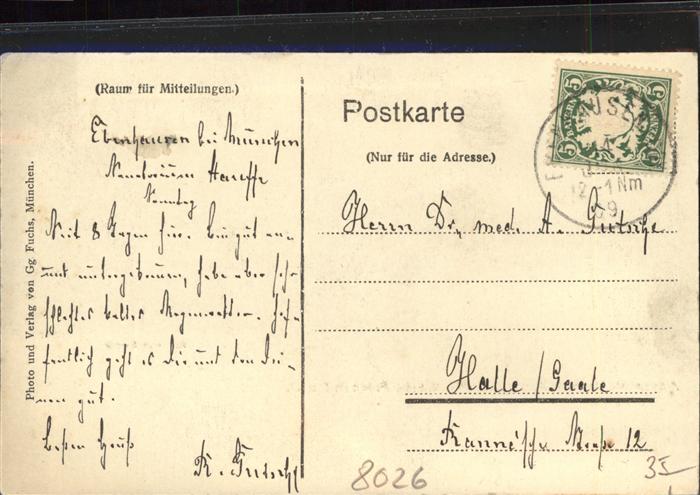 (Raum für Mitteilungen.)
Ebenhausen bei München
Sonntag
Seit 8 Tagen hier. Bin gut an-
und untergebracht, habe aber sehr
schlechtes kaltes Regenwetter. Hof-
fentlich geht es Dir und den Dei-
nen gut.
Besten Gruß
Photo und Verlag von Gg Fuchs, München.
Postkarte
(Nur für die Adresse.)
5
5
5
5
BAYERN
12-1 Nm
09
Herrn Dr. med. A.
Halle / Saale
Straße 12
8026